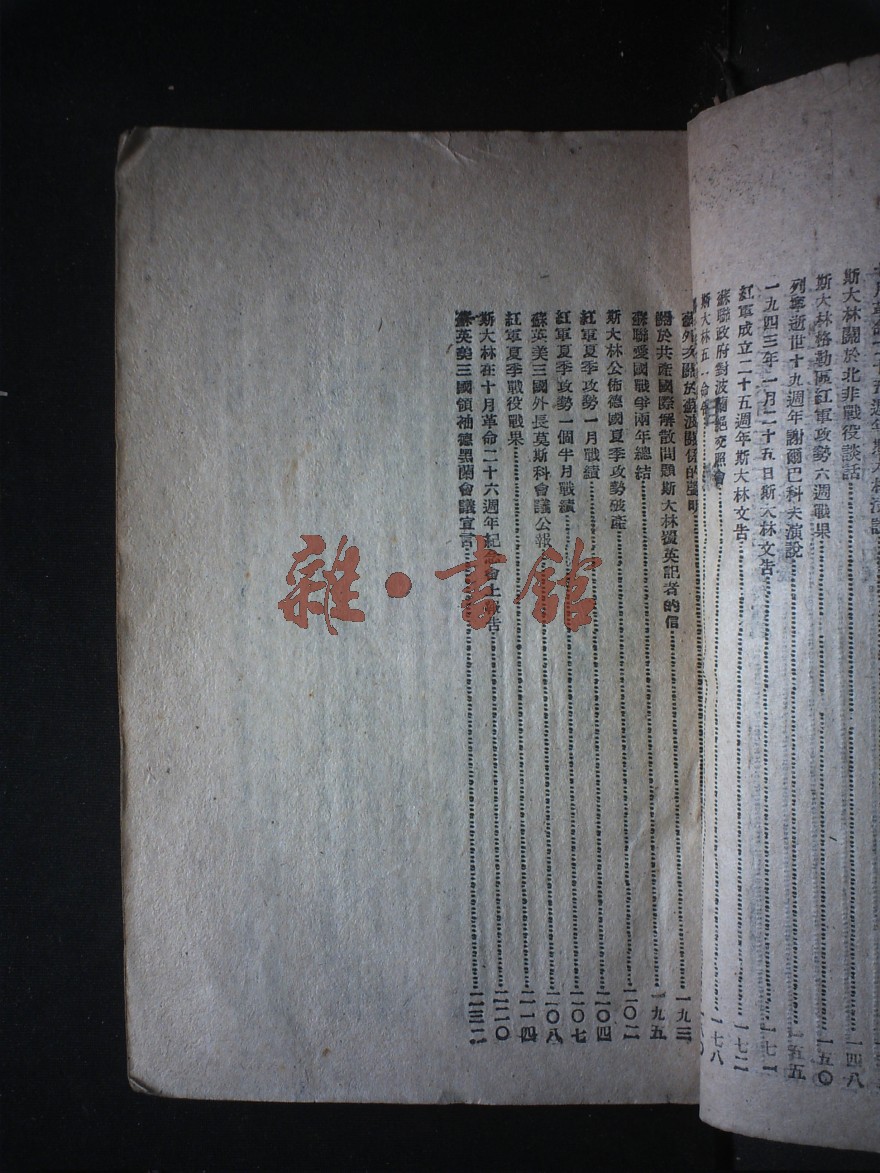 斯大林關於北非戰役談話 一四八
斯大林格勒區紅軍攻勢六週戰果 一五〇
列寧逝世十九週年謝爾巴科夫演說 一五五
一九四三年一月二十五日斯大林文告 一七一
紅軍成立二十五週年斯大林文告 一七二
蘇聯政府對波蘭絕交照會 一七八
斯大林五一命令
關於蘇波關係的聲明 一九三
關於共產國際解散問題斯大林覆英記者的信 一九五
蘇聯愛國戰爭兩年總結
斯大林公佈德國夏季攻勢破產 二〇四
紅軍夏季攻勢一月戰績 二〇七
紅軍夏季攻勢一個半月戰績 二〇八
蘇英美三國外長莫斯科會議公報 二一四
紅軍夏季戰役戰果 二二〇
斯大林在十月革命二十六週年紀念會上報告
蘇英美三國領袖德黑蘭會議宣言
雜·書館